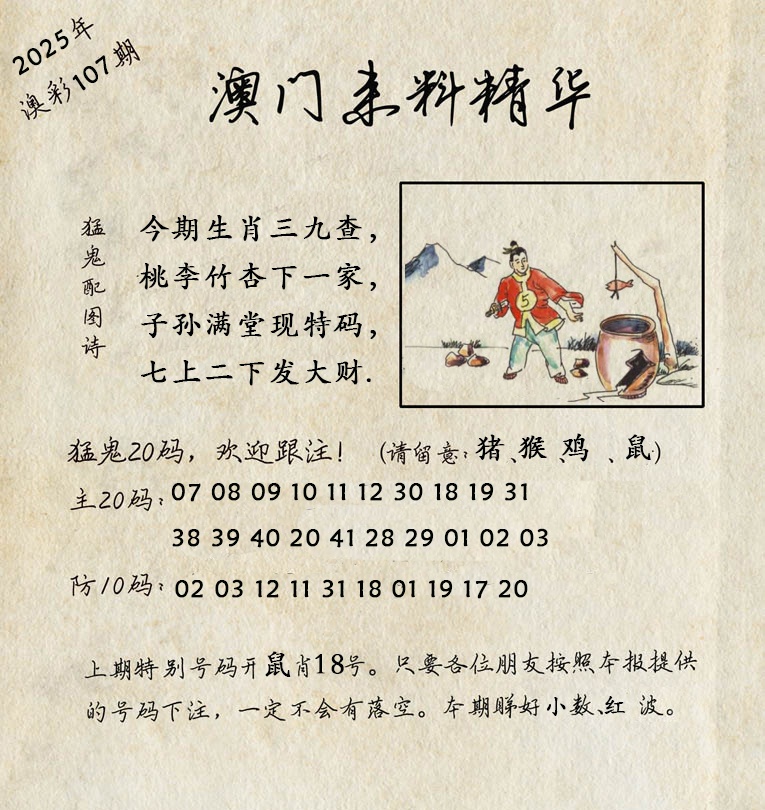 2025年
澳彩107期
澳门来料精华
猛鬼配图诗
今期生肖三九查，
桃李竹杏下一家，
子孙满堂现特码，
七上二下发大财.
5
猛鬼20码，欢迎跟注！（请留意：猪、猴、鸡、鼠）
主20码：07 08 09 10 11 12 30 18 19 31
38 39 40 20 41 28 29 01 02 03
防10码：02 03 12 11 31 18 01 19 17 20
上期特别号码开鼠肖18号。只要各位朋友按照本报提供
的号码下注，一定不会有落空。本期睇好小数、红 波。